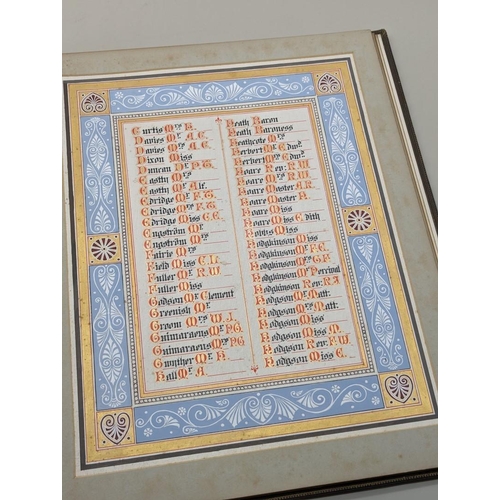 Curtis Mrs H.
Davies Mr A.E.
Davies Mrs A.E.
Dixon Miss
Duncan Dr P.T.
Eastty Mrs
Eastty Mr Alf.
Edridge Mr F.T.
Edridge Mrs F.T.
Edridge Miss E.E.
Engström Mr
Engström Mrs
Fairie Mrs
Field Miss C.L.
Fuller Mr R.W.
Fuller Miss
Godson Mr Clement
Greenish Mr
Groom Mrs W.J.
Guimaraens Mr P.G.
Guimaraens Mrs P.G.
Gwyther Mr H.
Hall Mr A.
Heath Baron
Heath Baroness
Heathcote Mrs
Herbert Mr Edwd
Herbert Mrs Edwd
Hoare Rev: R.W.
Hoare Mrs R.W.
Hoare Master A.R.
Hoare Master A.
Hoare Miss
Hoare Miss Edith
Hobbs Miss
Hodgkinson Miss
Hodgkinson Mr F.G.
Hodgkinson Mr T.H.
Hodgkinson Mr Percival
Hodgkinson Rev: R.J.
Hodgson Mr Matt:
Hodgson Mrs Matt:
Hodgson Miss
Hodgson Miss M.
Hodgson Rev: F.W.
Hodgson Miss C.